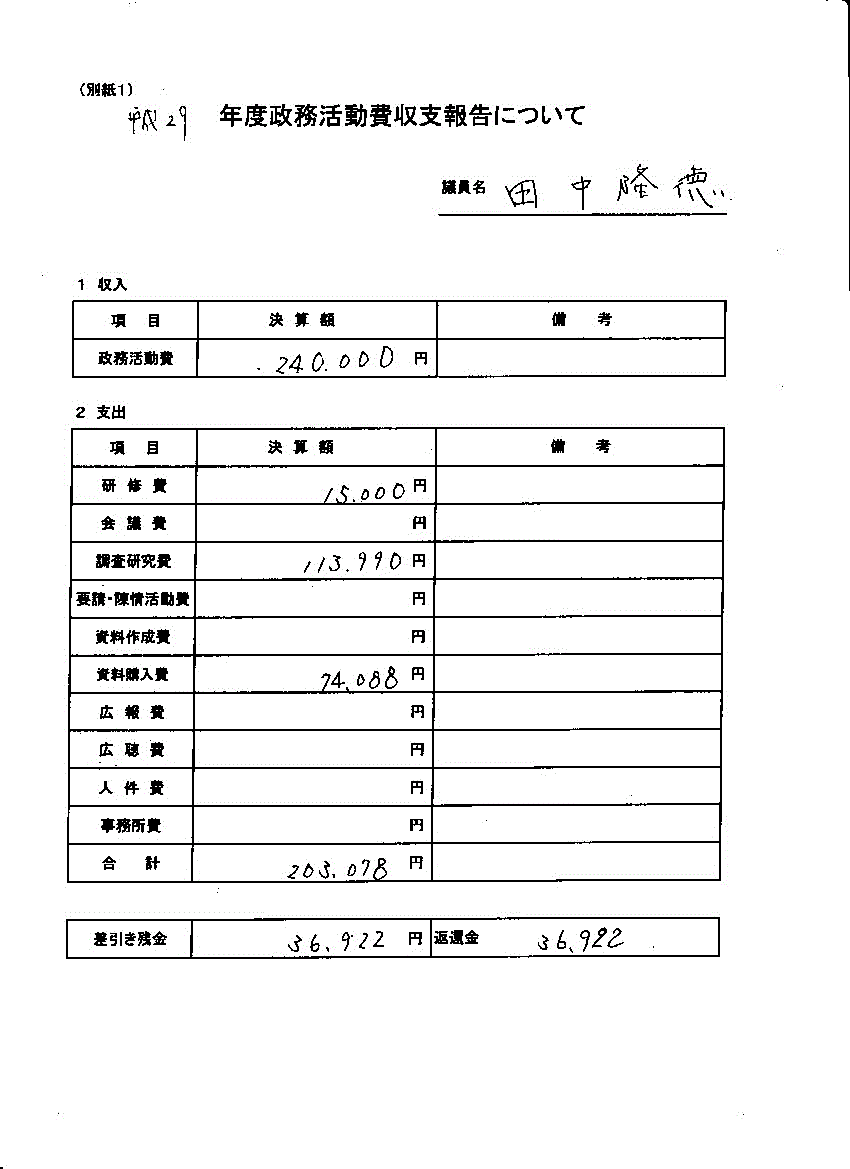 （別紙1）
平成29 年度政務活動費収支報告について
議員名 田中隆徳
1 収入
項 目 決 算 額 備 考
政務活動費 240.000 円
2 支出
項 目 決 算 額 備 考
研 修 費 15.000 円
会 議 費 円
調査研究費 113.990 円
要請・陳情活動費 円
資料作成費 円
資料購入費 74.088 円
広 報 費 円
広 聴 費 円
人 件 費 円
事務所費 円
合 計 203.078 円
差引き残金 36.922 円 返還金 36,922